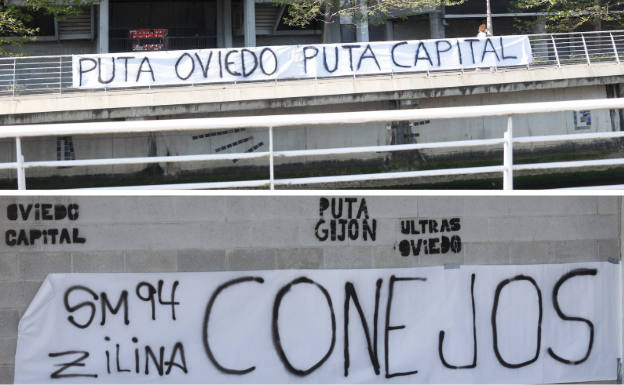 PUTA OVIEDO PUTA CAPITAL
OVIEDO
CAPITAL
PUTA
GIJON
ULTRAS
OVIEDO
SM94
ZILINA
CONEJOS